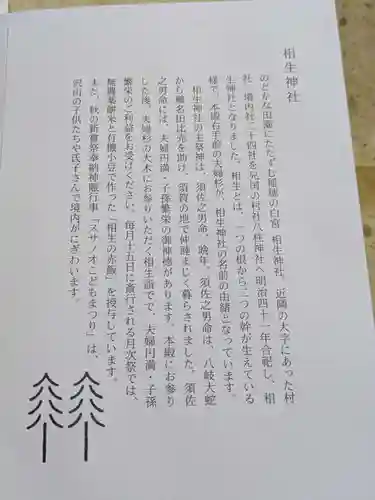 相生神社
のどかな田園にたたずむ稲穂の白宮 相生神社。近隣の大字にあった村
社、境内社二十四社を兄国の村社八柱神社へ明治四十一年合祀し、相
生神社となりました。相生とは、一つの根から二つの幹が生えている
様で、本殿右手前の夫婦杉が、相生神社の名前の由緒となっています。
相生神社の主祭神は、須佐之男命、晩年、須佐之男命は、八岐大蛇
から櫛名田比売を助け、須賀の地で仲睦まじく暮らされました。須佐
之男命には、夫婦円満・子孫繁栄の御神徳があります。本殿にお参り
した後、夫婦杉の大木にお参りいただく相生詣で、夫婦円満・子孫
繁栄のご利益をお受けください。毎月十五日に斎行される月次祭では、
無農薬餅米と有機小豆で作った「相生の赤飯」を授与しています。
また、秋の新嘗祭奉納神賑行事「スサノオこどもまつり」は、
沢山の子供たちや氏子さんで境内がにぎわいます。